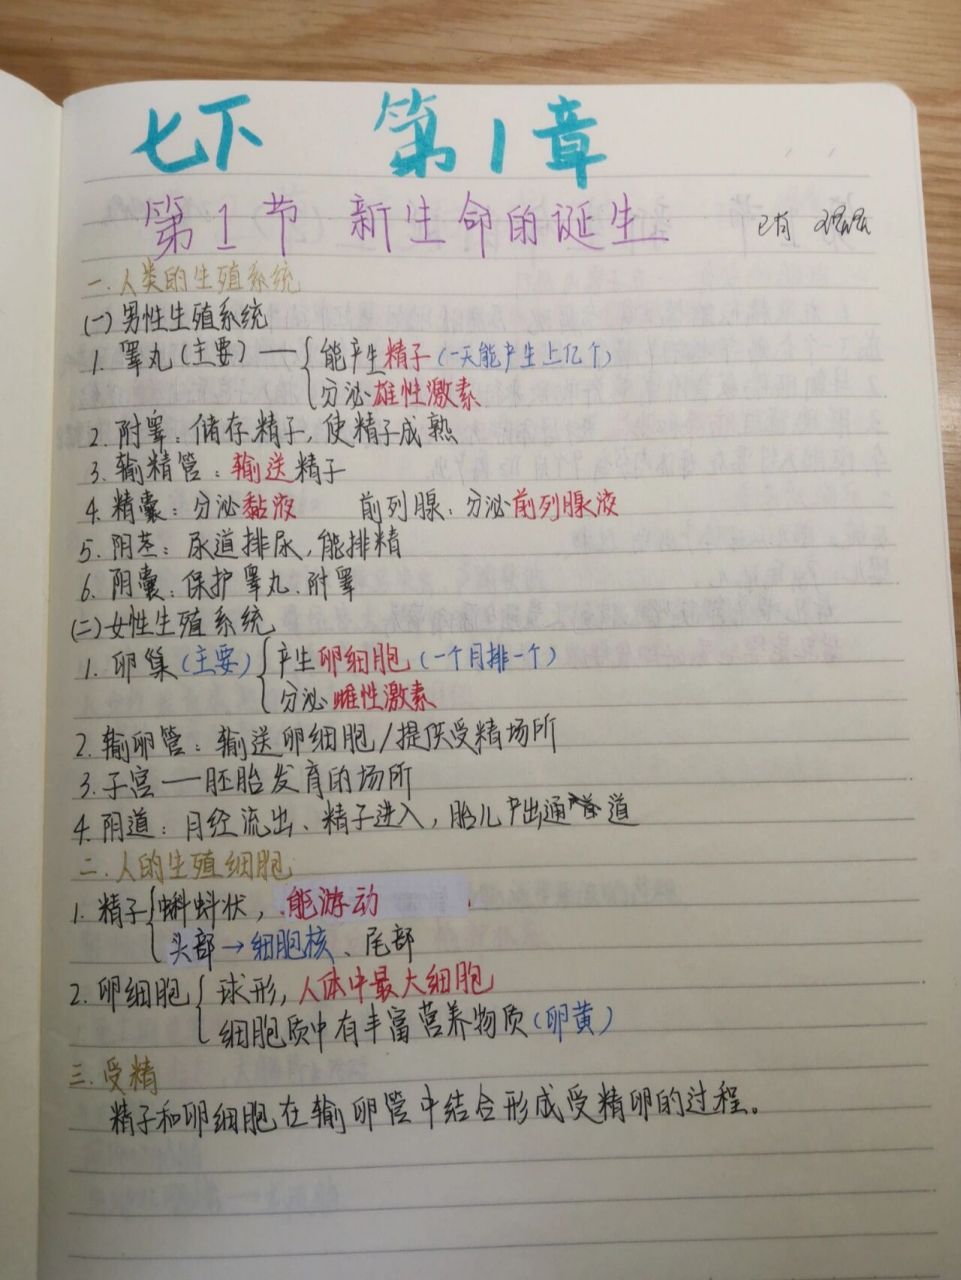 七下 第1章
第1节 新生命的诞生
一.人类的生殖系统
(一)男性生殖系统
1.睾丸(主要)——{能产生精子(一天能产生上亿个)
分泌雄性激素
2.附睾:储存精子,使精子成熟
3.输精管:输送精子
4.精囊:分泌黏液 前列腺:分泌前列腺液
5.阴茎:尿道排尿,能排精
6.阴囊:保护睾丸.附睾
(二)女性生殖系统
1.卵巢(主要){产生卵细胞(一个月排一个)
分泌雌性激素
2.输卵管:输送卵细胞/提供受精场所
3.子宫——胚胎发育的场所
4.阴道:月经流出、精子进入,胎儿产出通道
二.人的生殖细胞
1.精子{蝌蚪状,能游动
头部→细胞核、尾部
2.卵细胞{球形,人体中最大细胞
细胞质中有丰富营养物质(卵黄)
三.受精
精子和卵细胞在输卵管中结合形成受精卵的过程。